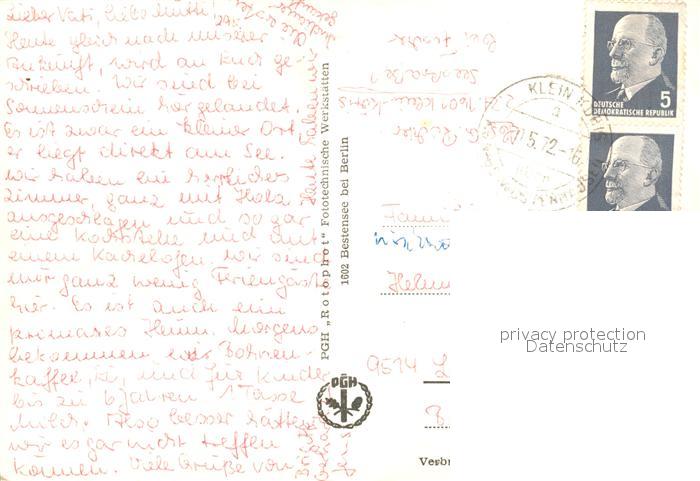 Lieber Vati, liebe Mutti!
Heute gleich nach unserer
Ankunft, wird an Euch ge-
schrieben. Wir sind bei
Sonnenschein hier gelandet.
Es ist zwar ein kleiner Ort
er liegt direkt am See.
Wir haben ein herrliches
Zimmer, ganz mit Holz
ausgeschlagen und so gar
eine Kochstelle und mit
einem Kachelofen. Wir sind
nur ganz wenig Feriengäste
hier. Es ist auch ein
primares Heim. Morgens
bekommen wir Bohnen-
kaffee, und für Kinder
bis zu 6 Jahren 1 Tasse
Milch. Also besser hätten
wir es gar nicht treffen
können. Viele Grüße von
Heute haben wir
PGH „Rotophot“ Fototechnische Werkstätten
1602 Bestensee bei Berlin
PGH
bei Fischer
Seestraße 7
1601 Klein-Köris
KLEIN KÖRIS
5.72-16
DEUTSCHE
DEMOKRATISCHE REPUBLIK 5
Helmu
9514 L
B
Verbr
privacy protection
Datenschutz